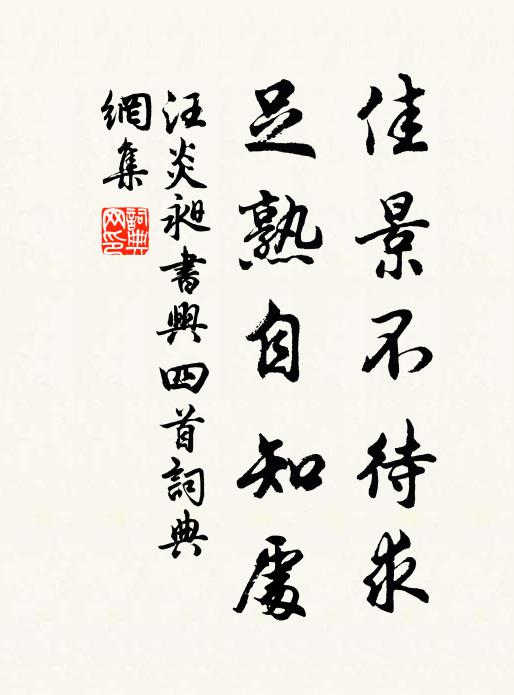 佳景不待求
足熟自知處
汪炎昶書興四首詞典
網集
詞典
网印